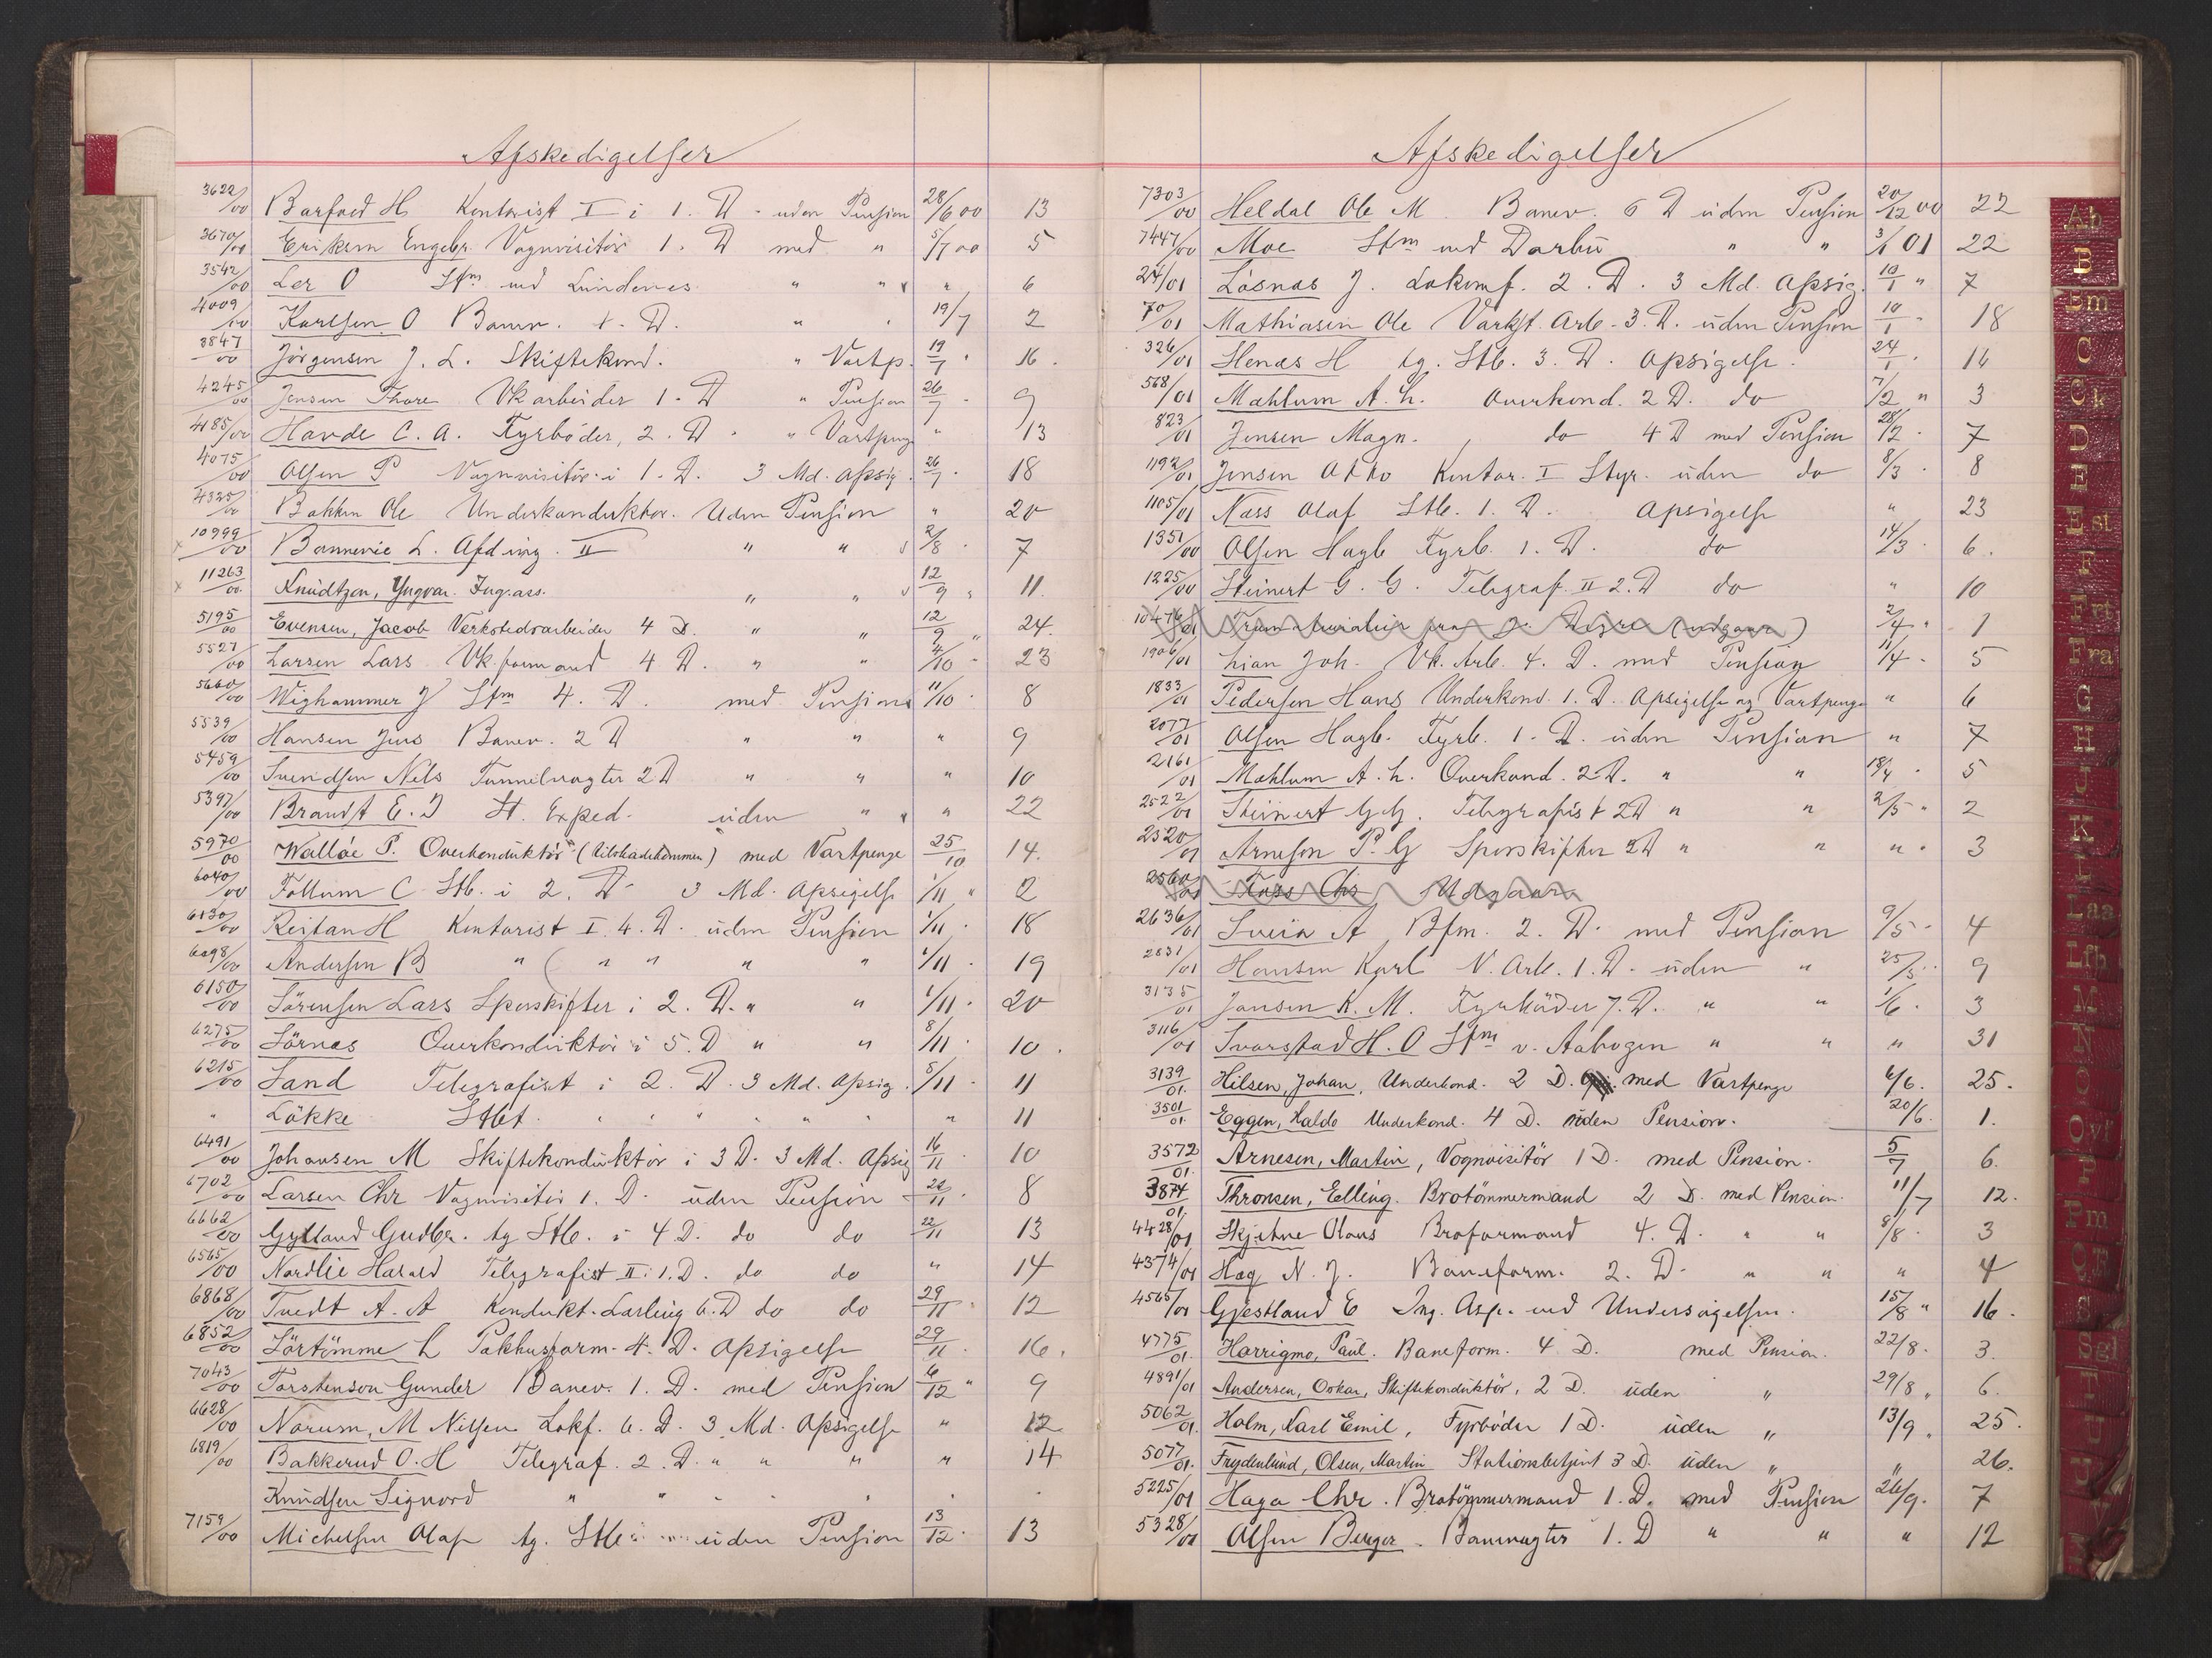 Afskedigelser
3622/00 Barfoed H. Kontorist I i 1. D. uden Pension 28/6 00 13
3670/00 Eriksen Engebr. Vognvisitör 1. D med " 5/7 00 5
3542/00 Ler O Stm ved Lundenes " " " 6
4009/00 Karlsen O Banev. 1. D. " " 19/7 2
3847/00 Jörgensen J. L. Skiftekond. " Vartp. 19/7 " 16.
4245/00 Jensen Thore Vk arbeider 1. D " Pension 26/7 " 9
4185/00 Havde C. A. Fyrböder, 2. D. " Vartpenge " 13
4075/00 Olsen P Vognvisitör i 1. D. 3 Md. Opsig. 26/7 " 18
4325/00 Bakken Ole Underkonduktör. Uden Pension " 20
10999/00 Bannevie L. Afd ing. II " " 2/8 " 7
11263/00 Knudtzon, Yngvar. Ing.ass. " " 12/9 " 11.
5195/00 Evensen, Jacob Verkstedsarbeider 4 D. " " 12/9 " 24.
5527/00 Larsen Lars Vk. formand 4 D. " " 4/10 " 23
5660/00 Wighammer J Stm 4. D. med Pension 11/10 " 8
5539/00 Hansen Jens Banev. 2 D " " " 9
5459/00 Svendsen Nils Tunnelvagter 2 D " " " 10
5397/00 Brandt E. J St. Exped. uden " " 22
5970/00 Walløe P. Overkonduktör (tilskadekommen) med Vartpenge 25/10 14.
6040/00 Follum C Stb. i 2. D. 3 Md. Opsigelse 1/11 " 2
6130/00 Reitan H Kontorist I. 4. D. uden Pension 1/11 " 18
6098/00 Andersen B " " " " " 1/11 " 19
6150/00 Sörensen Lars Sporskifter i 2. D. " " 1/11 " 20
6275/00 Sörnes Overkonduktör i 5. D " " 8/11 " 10.
6215/00 Sand Telegrafist i 2. D. 3 Md. Opsig. 8/11 " 11
" Lökke Stbt. " " " " " " " 11
6491/00 Johansen M Skiftekonduktör i 3 D. 3 Md. Opsig 16/11 " 10
6702/00 Larsen Chr Vognvisitör 1. D. uden Pension 22/11 " 8
6662/00 Gylland Gudbr. tg Stb. i 4 D. do do 22/11 13
6565/00 Nordlie Harald Telegrafist II i 1. D. do do " 14
6868/00 Tvedt A. A Kondukt. Lærling 6. D do do 29/11 " 12
6852/00 Sörtömme L Pakhusform. 4. D. Opsigelse 29/11 " 16.
7043/00 Torstenson Gunder Banev. 1. D. med Pension 6/12 " 9
6628/00 Norum, M Nilsen Lokf. 6. D. 3 Md. Opsigelse " 12
6819/00 Bakkerud O. H Telegraf. 2. D. " " " " 14
Knudsen Sigvard " " " " " "
7159/00 Michelsen Olaf tg. Stb. uden Pension 13/12 " 13
Afskedigelser
7303/00 Heldal Ole M. Banev. 6 D uden Pension 20/12 00 22
7447/00 Moe Stm ved Darbu " " 3/1 01 22
24/01 Lösnæs J. Lokomf. 2. D. 3 Md. Opsig. 10/1 " 7
70/01 Mathiasen Ole Værkst. Arb. 3. D. uden Pension 10/1 " 18
326/01 Henæs H tg. Stb. 3. D. Opsigelse. 24/1 " 16
568/01 Mæhlum A. L. Overkond. 2 D. do 7/2 " 3
823/01 Jensen Magn. do 4 D med Pension 28/2 " 7
1192/01 Jensen Otto Kontor. I Styr. uden do 8/3 " 8
1105/01 Næss Olaf Stb. 1. D. Opsigelse " 23
1351/00 Olsen Hagb Fyrb. 1. D. do 14/3 " 6.
1225/00 Steinert G. G. Telegraf. II 2. D do " 10
2/4 " 1
1906/01 Lian Joh. Vk. Arb. 4. D. med Pension 11/4 " 5
1833/01 Pedersen Hans Underkond. 1. D. Opsigelse og Vartpenge " 6
2077/01 Olsen Hagb. Fyrb. 1. D. uden Pension " 7
2161/01 Mæhlum A. L. Overkond. 2 D. " " 18/4 " 5
2522/01 Steinert G. G. Telegrafist 2 D " " 2/5 " 2
2520/01 Arneson P. G Sporskifter 2 D " " " 3
2560/01 Foss Chr Udgaar
2636/01 Sveia A Bfm. 2. D. med Pension 9/5 " 4
2831/01 Hansen Karl V. Arb. 1. D. uden " 25/5 " 9
3135/01 Jansen K. M. Fyrböder 7. D. " " 1/6 " 3
3116/01 Svarstad H. O Stm v. Aabogen " " " 31
3139/01. Hilsen, Johan, Underkond. 2 D. med Vartpenge 6/6. 25.
3501/01. Eggen, Haldo Underkond. 4 D. uden Pension. 20/6. 1.
3572/01. Arnesen, Martin, Vognvisitör 1 D. med Pension. 5/7 6.
3874/01. Thronsen, Elling. Brotömmermand 2 D. med Pension. 11/7 12.
4428/01 Skjetne Olaus Broformand 4. D. " " 8/8 " 3
4374/01 Hag N. J. Baneform. 2. D. " " " 4
4565/01 Gjestland E Ing. Asp. ved Undersögelsen. 15/8 " 16.
4775/01. Harrigmo, Paul. Baneform. 4 D. med Pension. 22/8. 3.
4891/01 Andersen, Oskar, Skiftekonduktör, 2 D. uden " 29/8 " 6.
5062/01. Holm, Karl Emil, Fyrböder 1 D. uden " 13/9 " 25.
5077/01. Frydenlund, Olsen, Martin Stationsbetjent 3 D. uden " " 26.
5225/01 Haga Chr. Brotömmermand 1. D. med Pension 26/9. 7
5328/01 Olsen Berger. Banevagter 1. D " " " 12
Ab
B
Bm
C
Ck
D
E
Est
F
Frt
Fra
G
H
J
K
L
Laa
Lfh
M
N
O
Ovf
P
Pm